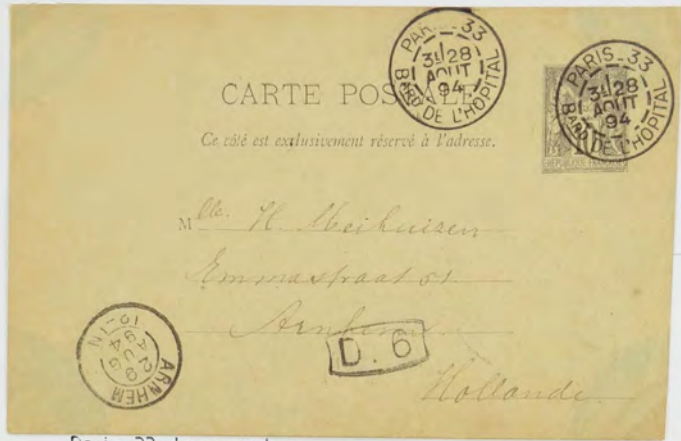 PARIS_33
3E 28
AOUT
94
BARD DE L'HOPITAL
PARIS_33
3E 28
AOUT
94
BARD DE L'HOPITAL
CARTE POSTALE
REPUBLIQUE FRANÇAISE
Ce côté est exclusivement réservé à l'adresse.
Mlle. H. Meihuizen
Emmastraat 51
Arnhem
D. 6
Hollande.
ARNHEM
29
AUG
94
10-1N
Paris 33